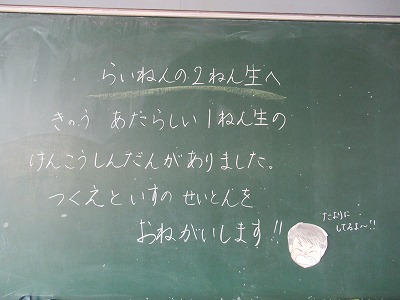 らいねんの2ねん生へ
きのう あたらしい1ねん生の
けんこうしんだんがありました。
つくえといすの せいとんを
おねがいします!!
たよりに
してるよ〜!!